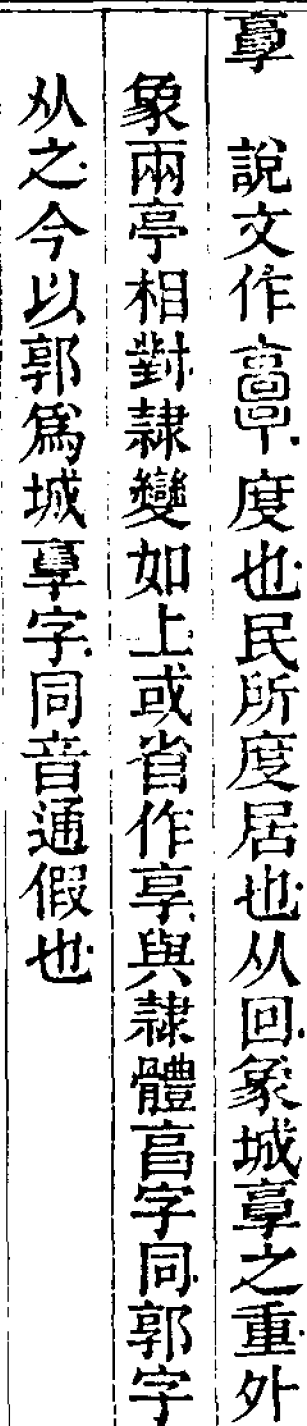 𩫖 說文作𩫏度也民所度居也从回象城𩫖之重外
象兩亭相對隸變如上或省作享與隸體亯字同郭字
从之今以郭爲城𩫖字同音通假也